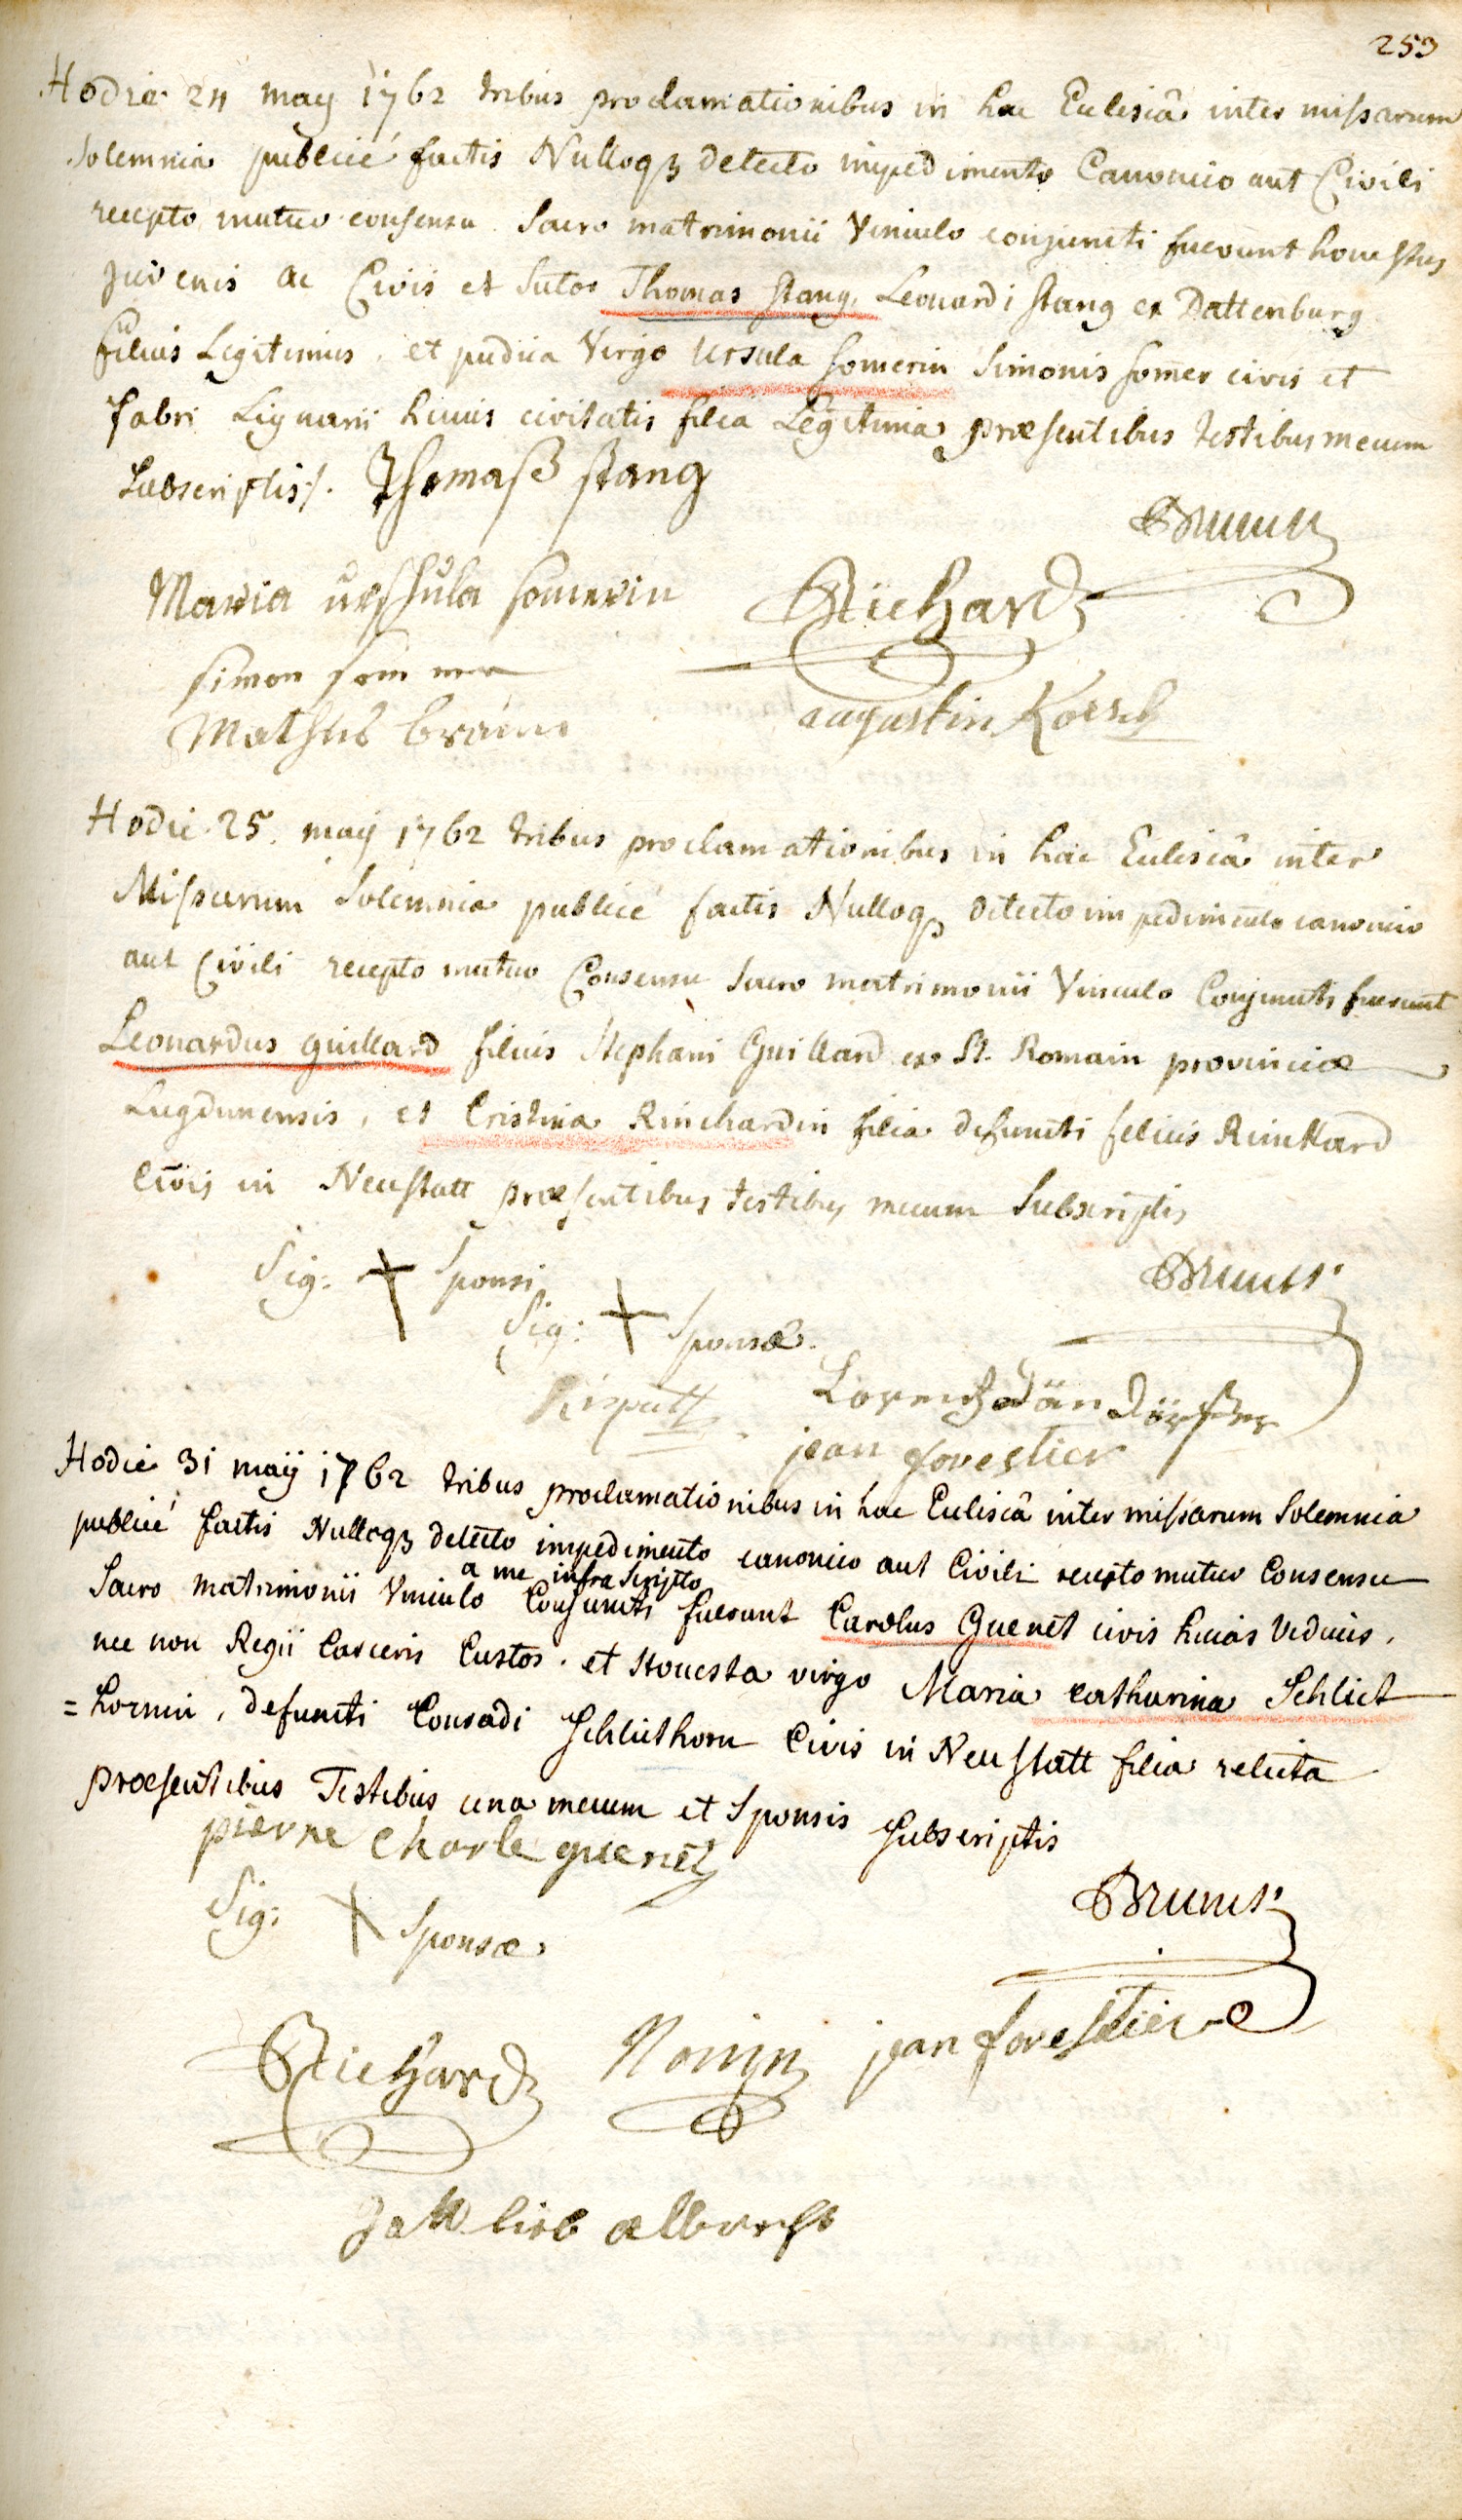 253
Hodie 24 may 1762 tribus proclamationibus in hac Eclesiâ inter missarum
solemnia publicé factis Nulloqȝ detecto impedimento Canonico aut Civili
recepto mutuo consensu Sacro matrimonii Vinculo conjuncti fuerunt honestus
juvenis ac Civis et Sutor Thomas Stang, Leonardi Stang ex Dattenburg
filius Legitimus, et pudica Virgo Ursula Somerin Simonis Somer civis et
fabri Lignarii hujus civitatis filia Legitima præsentibus testibus mecum
Subscriptis/. Thomaß Stang
Maria urschula Somerin Richard
Simon
augustin
Hodie 25. maÿ 1762 tribus proclamationibus in hac Eclesiâ inter
Missarum Solemnia publicé factis Nulloqȝ detecto impedimento canonico
aut Civili recepto mutuo Consensu Sacro matrimonii Vinculo Conjuncti fuerunt
Leonardus Guillard filius Stephani Guillard ex St. Romain provinciæ
Lugdunensis, et Cristina Rinchardin filia defuncti felicis Rinckard
Civis in Neustatt præsentibus testibus mecum Subscriptis
Sig: + Sponsi
Sig: + Sponsæ.
Lorentz
jean forestier
Hodie 31 maÿ 1762 tribus proclamationibus in hac Eclisiâ inter missarum Solemnia
publicé factis Nulloqȝ detecto impedimento canonico aut Civili recepto mutuo Consensu
a me infra Scripto
Sacro matrimonii Vinculo Conjuncti fuerunt Carolus Guenet civis hujas Viduus,
nec non Regii Carceris Custos. et Honesta virgo Maria catharina Schlict
=hornin, defuncti Conradi Schlicthorn Civis in Neustatt filia relicta
præsentibus Testibus una mecum et Sponsis Subscriptis
pierre Charle guenet
Sig: + Sponsæ
Richard jean forestier